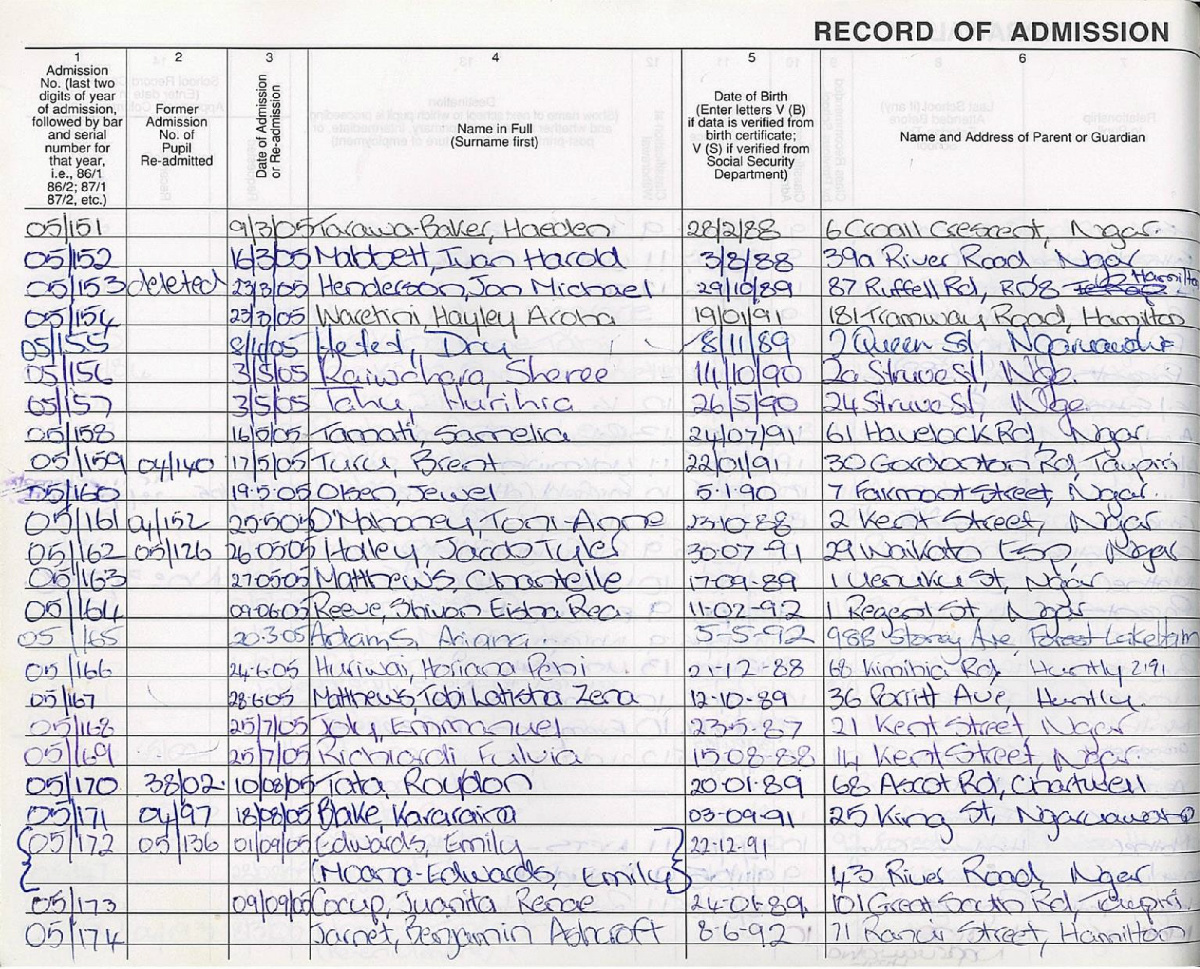 RECORD OF ADMISSION
1 2 3 4 5 6
Admission No. (last two digits of year of admission, followed by bar and serial number for that year, i.e., 86/1 86/2; 87/1 87/2, etc.)
Former Admission No. of Pupil Re-admitted
Date of Admission or Re-admission
Name in Full (Surname first)
Date of Birth (Enter letters V (B) if data is verified from birth certificate; V (S) if verified from Social Security Department)
Name and Address of Parent or Guardian
05/151 9/3/05 Tarawa-Baker, Haeden 28/2/88 6 Croall Crescent, Ngar.
05/152 16/3/05 Mabbett, Ivan Harold 3/8/88 39a River Road, Ngar
05/153 deleted 23/3/05 Henderson, Jon Michael 29/10/89 87 Ruffell Rd, RD8 Hamilton
05/154 23/3/05 Waretini Hayley Aroha 19/01/91 181 Tramway Road, Hamilton
05/155 05 Hetet, Dru 8/11/89 7 Queen St, Ngaruawahia
05/156 3/5/05 Raiwhara, Sheree 14/10/90 2a Struve St, Nga.
05/157 3/5/05 Tahu, Hurihia 26/5/90 24 Struve St, Nga.
05/158 16/5/05 Tamati, Samelia 24/07/91 61 Havelock Rd, Ngar
05/159 04/140 17/5/05 Turu, Brent 22/01/91 30 Gordonton Rd, Taupiri
05/160 19.5.05 Olsen, Jewel 5.1.90 7 Fairmont Street, Ngar.
05/161 04/152 25.5.05 O'Mahoney Toni-Anne 23-10-88 2 Kent Street, Ngar
05/162 05/126 26.05.05 Halley, Jacob Tyler 30-07-91 29 Waikato Esp, Ngar
05/163 27.05.05 Matthews, Chantelle 17-09-89 1 Uenuku St, Ngar
05/164 09.06.05 Reeve, Shivan Eisha Rea 11-02-92 1 Regent St, Ngar
05/165 20.3.05 Adams, Ariana 5-5-92 98B Storey Ave, Forest Lake Ham
05/166 24.6.05 Huriwai, Hariana Pepi 21-12-88 68 Kimihia Rd, Huntly 2191
05/167 28.6.05 Matthews, Tobi Latisha Zena 12-10-89 36 Porritt Ave, Huntly.
05/168 25/7/05 Joly, Emmanuel 23-5-87 21 Kent Street Ngar
05/169 25/7/05 Richiardi Fulvia 15-08-88 14 Kent Street, Ngar
05/170 38/02 10/08/05 Tata, Roydon 20-01-89 68 Ascot Rd, Chartwell
05/171 04/97 18/08/05 Bake, Kararaina 03-09-91 25 King St, Ngaruawahia
05/172 05/136 01/09/05 Edwards, Emily 22-12-91
(Moana-Edwards, Emily) 43 River Road, Ngar
05/173 09/09/05 Cocup, Juanita Renae 24-01-89 101 Great South Rd, Taupiri
05/174 Jarnet, Benjamin Ashcroft 8-6-92 71 Street, Hamilton